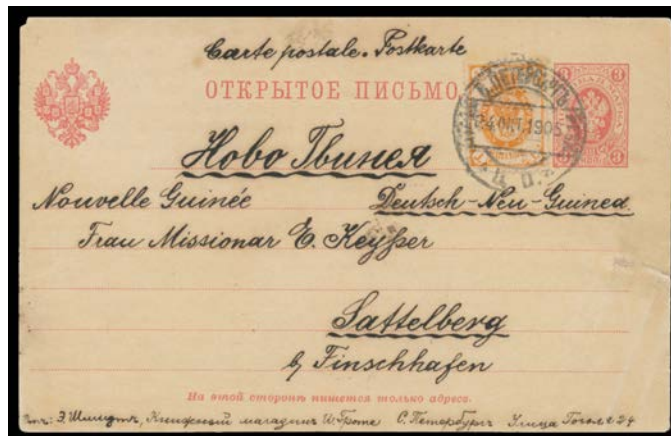 Carte postale. Postkarte
ОТКРЫТОЕ ПИСЬМО.
С.ПЕТЕРБУРГЪ
24 ОКТ.1905
3
3
3
Ново Гвинея
Nouvelle Guinée Deutsch-Neu-Guinea.
Frau Missionar E. Keyßer
Sattelberg
b/ Finschhafen
На этой сторонѣ пишется только адресъ.
Э. Шмидтъ, Книжный магазинъ И. Гроте С. Петербургъ Улица Гоголя 24